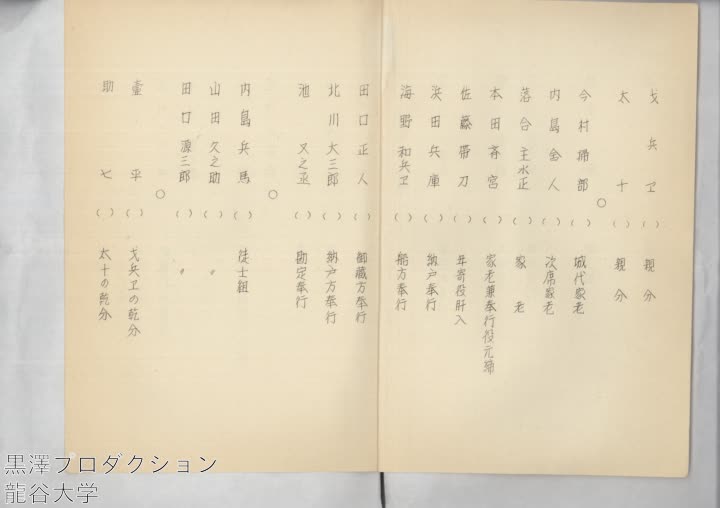 戈兵ヱ（　）親分
太十（　）親分
○
今村 郎（　）城代家老
内島金人（　）次席家老
落合主水正（　）家老
本田斉宮（　）家老兼奉行役元締
佐藤帯刀（　）年寄役肝入
浜田兵庫（　）納戸奉行
海野和兵ヱ（　）船方奉行
田口正人（　）御蔵方奉行
北川大三郎（　）納戸方奉行
池又之丞（　）勘定奉行
○
内島兵馬（　）徒士組
山田久之助（　）〃
田口源三郎（　）〃
○
平（　）戈兵ヱの乾分
助七（　）太十の乾分
黒澤プロダクション
龍谷大学